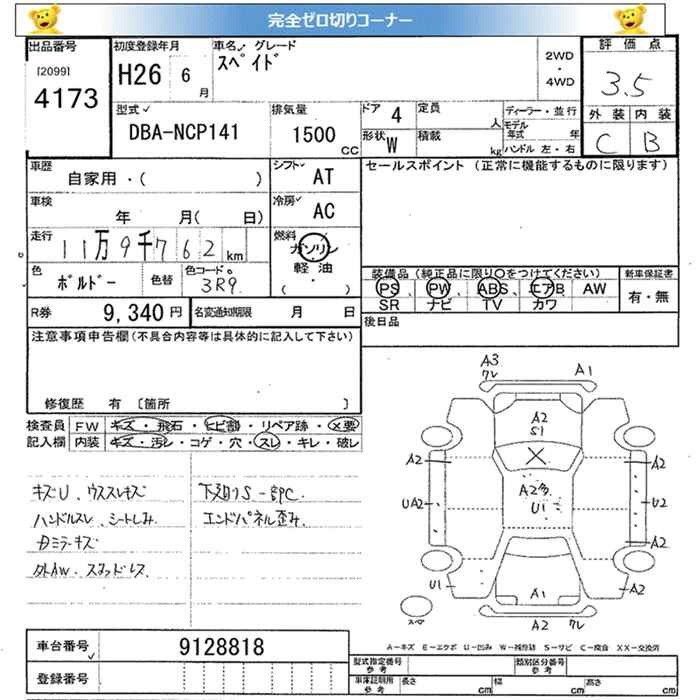 完全ゼロ切りコーナー
出品番号
[2099]
4173
初度登録年月
H26 6 月
車名 グレード
スペイド
2WD
・
4WD
評価点
3.5
外装 内装
C B
型式
DBA-NCP141
排気量
1500 CC
ドア 4
定員 人
形状 W
積載 kg
ディーラー・並行
モデル年式 年
ハンドル 左・右
車歴
自家用・( )
シフト AT
車検
年 月( 日)
冷房 AC
走行
11万9千762 km
燃料
ガソリン
軽油
( ・ )
色
ボルドー
色替
色コード
3R9
R券 9,340 円
名変通知期限 月 日
セールスポイント (正常に機能するものに限ります)
装備品(純正品に限り○をつけてください)
PS PW ABS エアB AW
SR ナビ TV カワ
新車保証書
有・無
後日品
注意事項申告欄(不具合内容等は具体的に記入して下さい)
修復歴 有 〔箇所 〕
検査員記入欄
FW キズ・飛石・ヒビ割・リペア跡・×要
内装 キズ・汚レ・コゲ・穴・スレ・キレ・破レ
キズU、ウススレキズ
ハンドルスレ、シートしみ、
外AW、スタッドレス、
下廻りS
エンドパネル歪み、
A3
ワレ
A1
A2
S1
A2
A2
A2多
U1
UA2
U2
A2
U1
A2
A1
A2 ワレ
スペア
A−キズ E−エクボ U−凹み W−補修跡 S−サビ C−腐食 XX−交換済
車台番号 9128818
登録番号
型式指定番号
参考
類別区分番号
参考
車庫証明用
参考
長さ cm 幅 cm 高さ cm